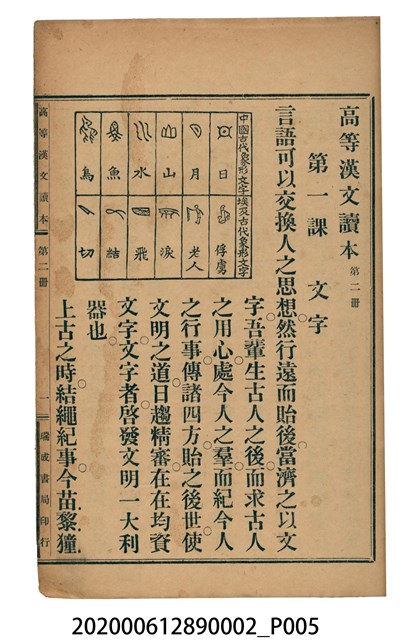 高等漢文讀本 第二冊
第一課 文字
言語可以交換人之思想然行遠而貽後當濟之以文
字吾輩生古人之後而求古人
之用心處今人之羣而紀今人
之行事傳諸四方貽之後世使
文明之道日趨精審在在均資
文字文字者啓發文明一大利
器也
上古之時結繩紀事今苗黎獞
中國古代象形文字 埃及古代象形文字
日 俘虜
月 老人
山 淚
水 飛
魚 結
鳥 切
高等漢文讀本 第二冊 一 瑞成書局印行
202000612890002_P005